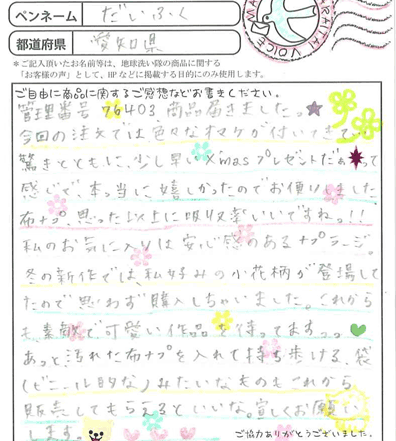 ペンネーム だいふく
都道府県 愛知県
*ご記入頂いたお名前等は、地球洗い隊の商品に関する
「お客様の声」として、HPなどに掲載する目的にのみ使用します。
ご自由に商品に関するご感想などお書きください。
管理番号76403 商品届きました。
今回の注文では色々なオマケが付いてきて
驚きとともに、少し早いX'masプレゼントだぁって
感じで、本当に嬉しかったのでお便りしました
布ナプ、思った以上に吸収率いいですねっ!!
私のお気に入りは安心感のあるナプラージ。
冬の新作では、私好みの小花柄が登場して
たので思わず購入しちゃいました。これから
も素敵で可愛い作品を待ってますっっ
あっと汚れた布ナプを入れて持ち歩ける、袋
(ビニール的な)みたいなものもこれから
販売してもらえるといいな。宜しくお願い
します。
ご協力ありがとうございました。
VOICE